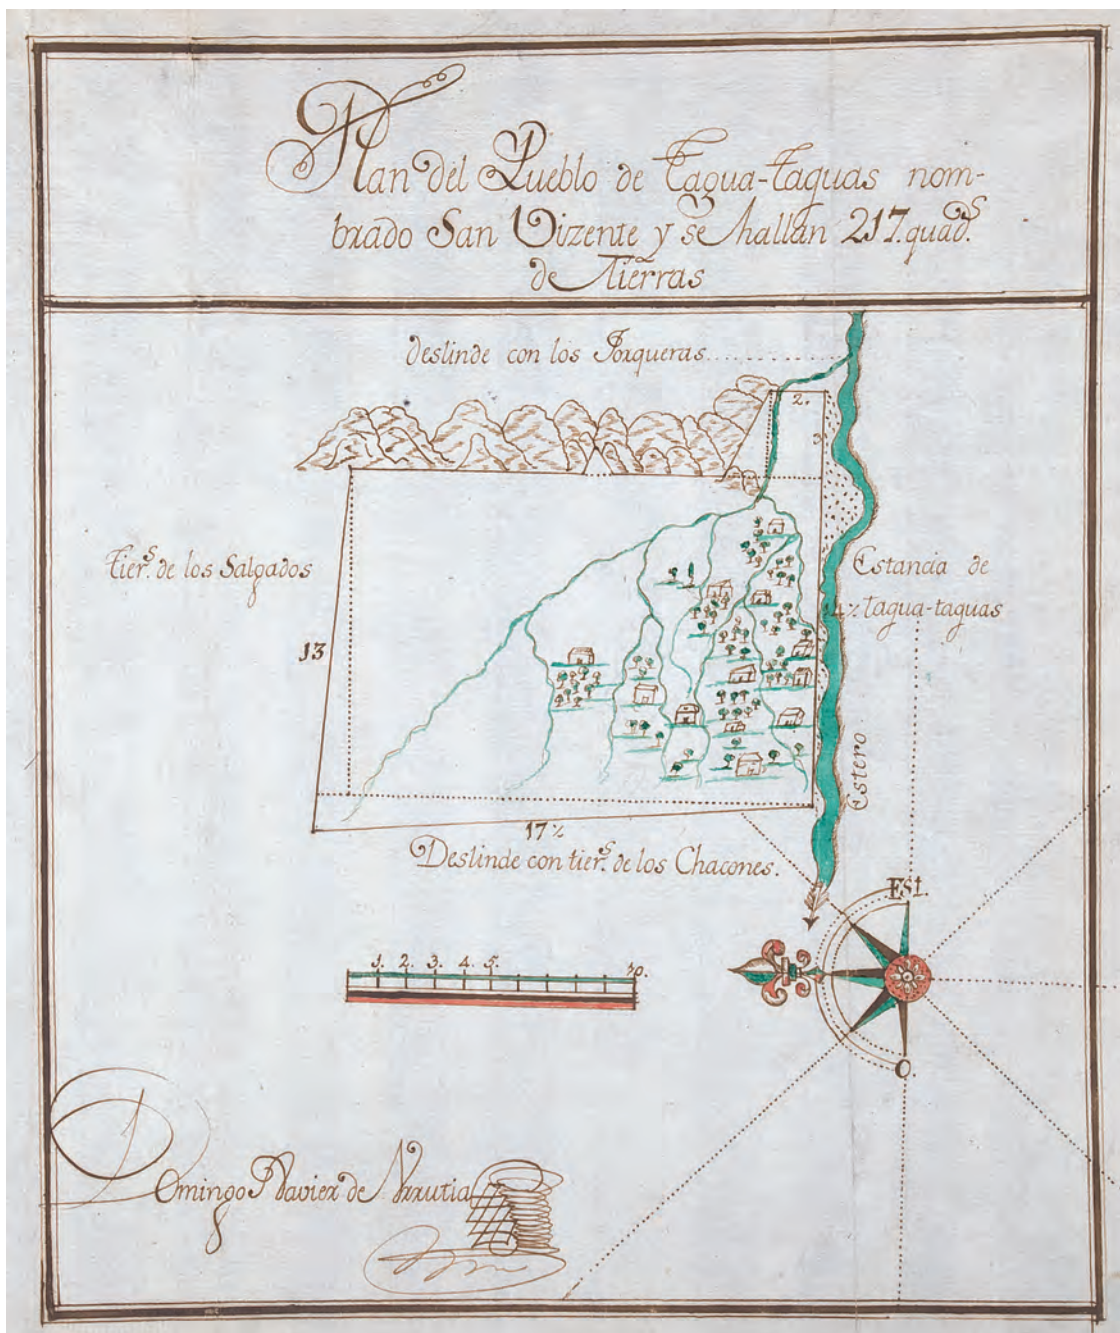 Plan del Pueblo de Tagua-Taguas nom-
brado San Vizente y se hallan 217. quad.s
de Tierras
deslinde con los Jorqueras
2.
3
tier.s de los Salgados
Estancia de
14½ tagua-taguas
13
Estero
17½
Deslinde con tier.s de los Chacones.
ESt.
1. 2. 3. 4. 5. 10.
O.
Domingo Xavier de Urrutia